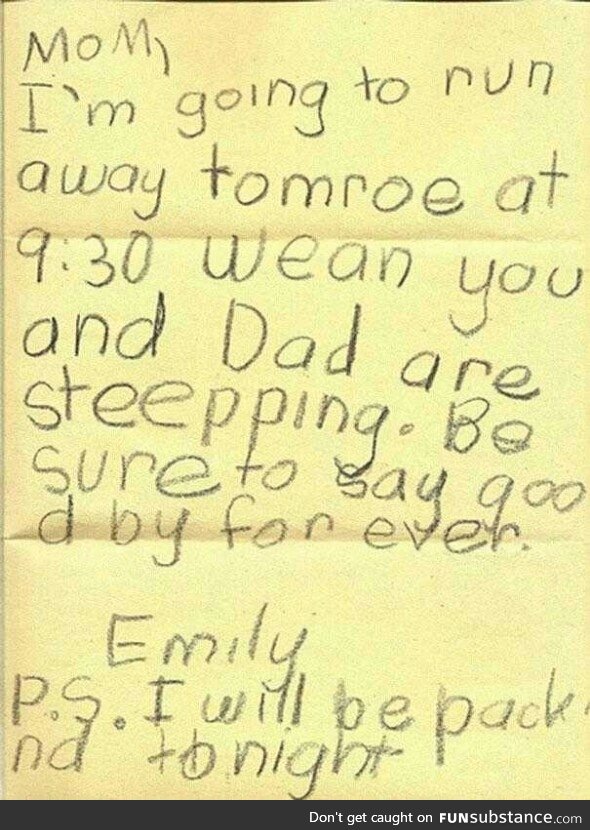 MoM,
I'm going to run
away tomroe at
9:30 wean you
and Dad are
steepping. Be
sure to say goo
d by for ever.
Emily
P.S. I will be pack
nd tonight
Don't get caught on FUNsubstance.com